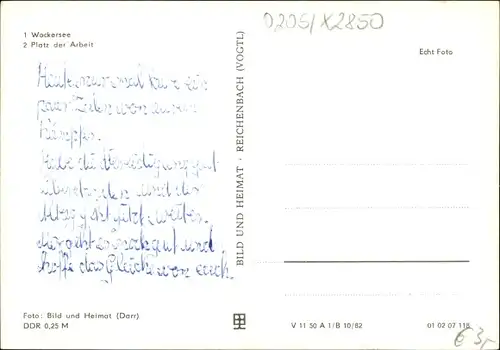 D205/X2850
1 Wockersee
2 Platz der Arbeit
Echt Foto
Heute nun mal kurz ein
paar Zeilen von
Habe die gut
überstanden und der
Alltag geht jetzt weiter.
Mir geht es noch gut und
hoffe das Gleiche von euch.
BILD UND HEIMAT · REICHENBACH (VOGTL)
Foto: Bild und Heimat (Darr)
DDR 0,25 M
V 11 50 A 1/B 10/82
01 02 07 118
€ 3,-